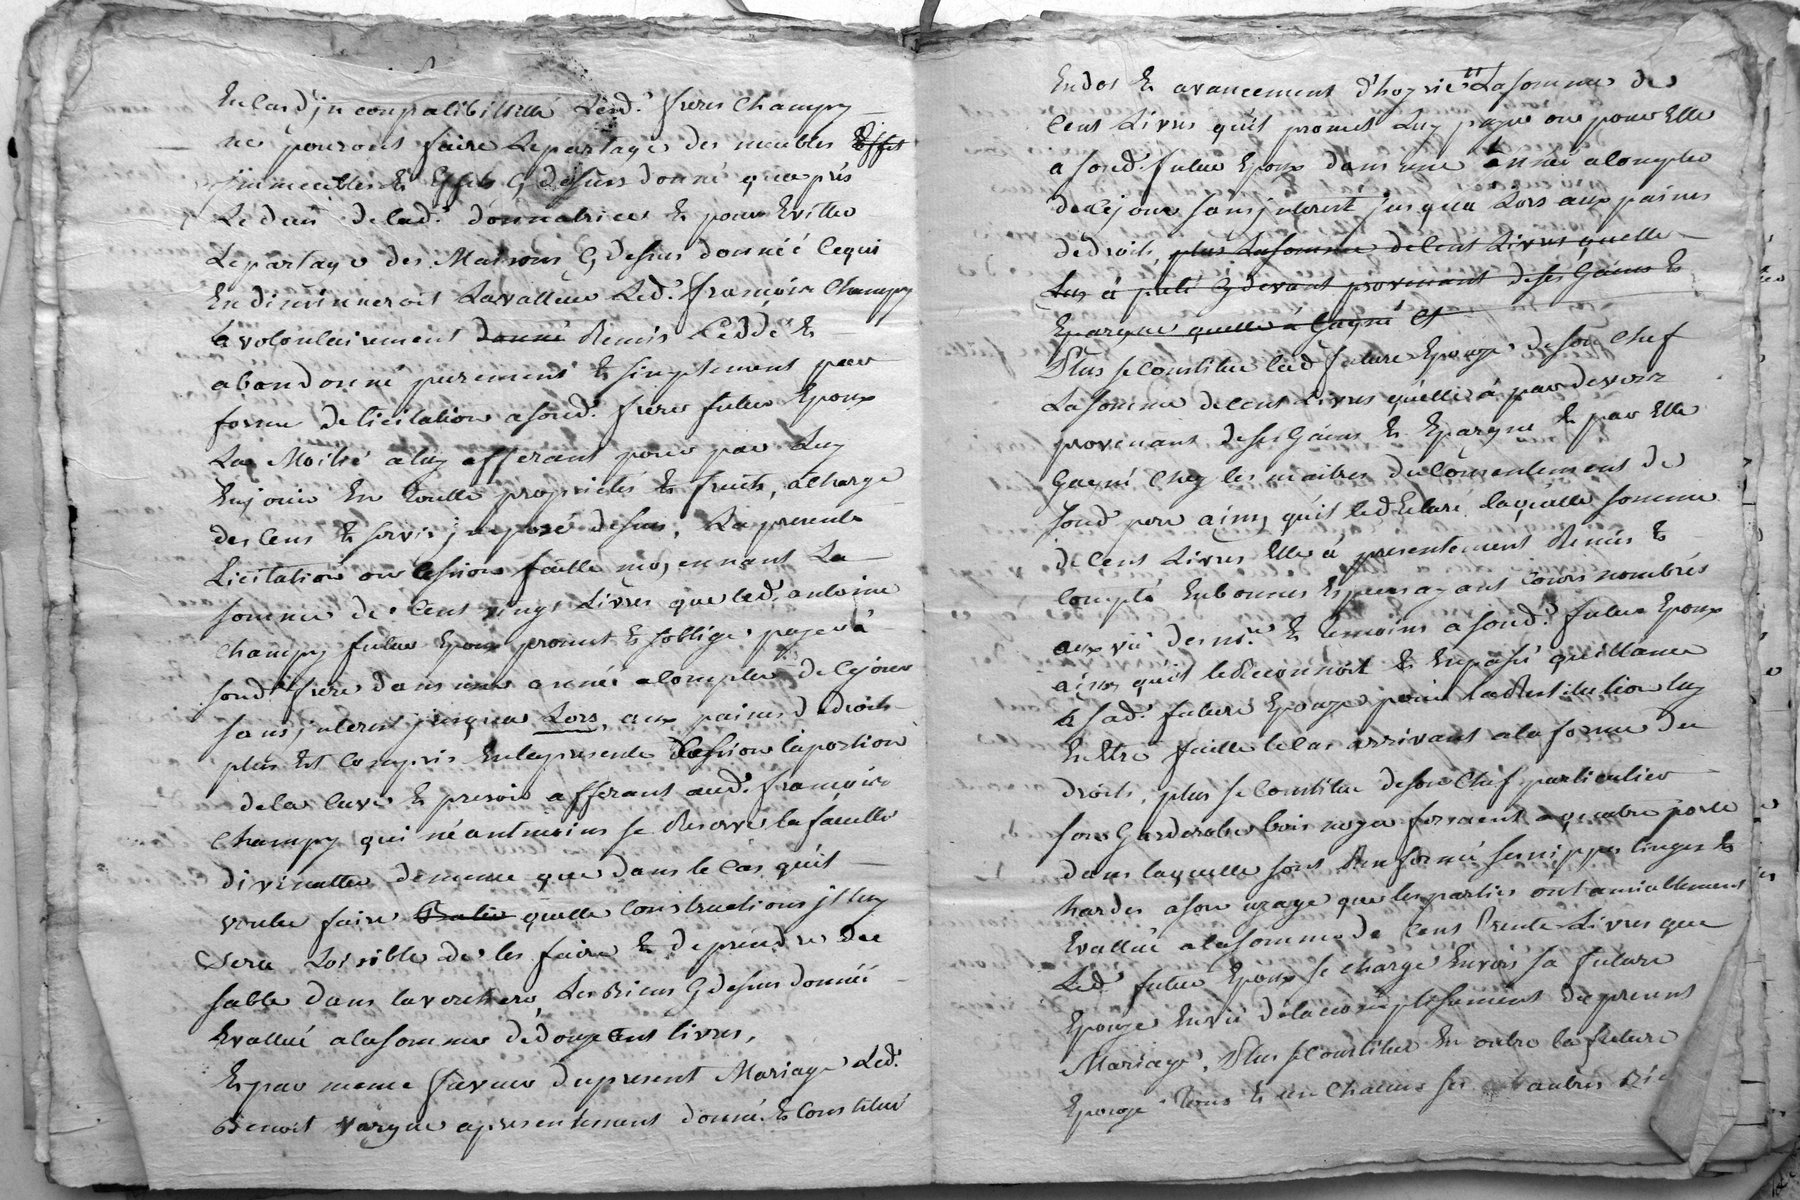 En Cas d'jncompatibillité Lesd.s freres Champy
ne pouront faire Le partage des meubles Effet
jmmeubles & Effets Cy dessus donné qu'après
Le dais de lad.e donnatrice & pour Evitter
Le partage des Maisons Cy dessus donnéé Ce qui
En diminueroit La valleur Led.t francois Champy
à volontairement donné Remis Céddé &
abandonné purement & simplement par
forme de licitation a sond.t frere futur Epoux
La Moitié a luy afferant pour par Luy
En jouir En toutte propriétés & fruits, a charge
des Cens & servis jmposé dessus, La presente
Licitation ou Cession faitte moyennant La
somme de Cent vingt Livres que led.t antoine
Champy futur Epoux promet & soblige payer à
sond.t frere dans une année a Compter de Ce jour
sans jnterest jusqua Lors, aux peines de droits
plus Est Compris En la presente Cession la portion
de la Cuve & presoir afferant aud.t francois
Champy qui néantmoins se Reserve la faculté
d'y cuver de meme que dans le Cas qu'il
voulu faire Batir quelle Constructions jl luy
sera Loisible de les faire & de prendre du
sable dans la verchere Les Biens Cy dessus donnéé
Evallué a la somme de douze Cent livres,
& par meme faveur du present Mariage Led.t
Benoit vargne a presentement donné & Constitué
En dot & avancement d'hoyrie La somme de
Cent Livres qu'il promet Luy payer ou pour Elle
a sond.t futur Epoux dans une année a Compter
de Ce jour sans jnterest jusqua Lors aux peines
de droits, plus La somme de Cent Livres quelle
Luy à pretté Cy devant provenant de ses Gains &
Epargne quelle à Gagné Ch
Plus se Constitue lad.e future Epouze de son Chef
La somme de Cent Livres qu'elle à par devers
provenant de ses Gains & Epargne & par Elle
Gagné Chez les maitres du Consentement de
sond.t pere ainsy qu'il le dEclaré laquelle somme
de Cent Livres Elle à presentement Remis &
Compté En bonnes Especes ayant Cours nombrés
aux vû des n.res & temoins a sond.t futur Epoux
ainsy qu'il le Reconnoit & En passe quittance
a sad.e future Epouze pour la Restitution luy
En Etre faitte le Cas arrivant a la forme du
droits, plus se Constitue de son Chef particulier
son Garderobe bois noyer fermant a quatre porte
dans laquelle sont Renfermé ses nippes linges &
hardes a son uzage que les parties ont amiablement
Evallué a la somme de Cent trente Livres que
Led.t futur Epoux se charge Envers sa future
Epouze En vû d'élaccomplissement du present
Mariage, Plus se Constitue En outre la future
Epouze tous & un Chacuns ses autres Bie